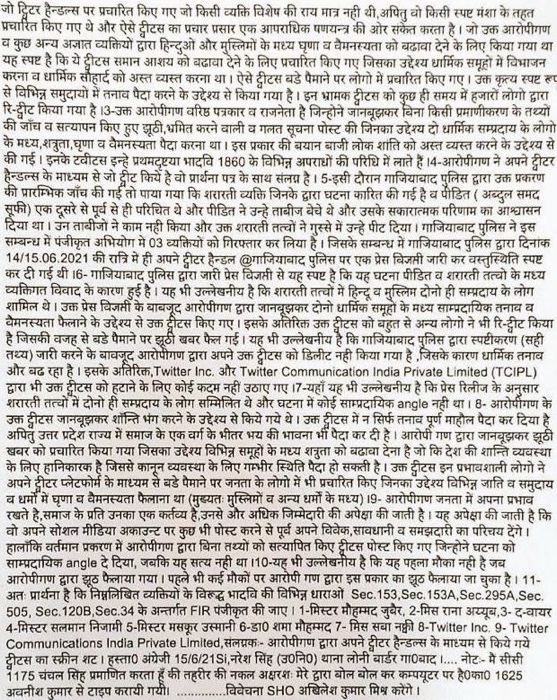 जो ट्विटर हैन्डल्स पर प्रचारित किए गए जो किसी व्यक्ति विशेष की राय मात्र नही थी,अपितु वो किसी स्पष्ट मंशा के तहत
प्रचारित किए गए थे और ऐसे ट्वीटस का प्रचार प्रसार एक आपराधिक षणयन्त्र की ओर संकेत करता है । जो उक्त आरोपीगण
व कुछ अन्य अज्ञात व्यक्तियों द्वारा हिन्दुओं और मुस्लिमों के मध्य घृणा व वैमनस्यता को बढावा देने के लिए किया गया था
यह स्पष्ट है कि ये ट्वीटस समान आशय को बढावा देने के लिए प्रचारित किए गए जिसका उद्देश्य धार्मिक समूहों में विभाजन
करना व धार्मिक सौहार्द को अस्त व्यस्त करना था । ऐसे ट्वीटस बडे पैमाने पर लोगो में प्रचारित किए गए । उक्त कृत्य स्पष्ट रूप
से विभिन्न समुदायो में तनाव पैदा करने के उद्देश्य से किया गया है । इन भ्रामक ट्वीटस को कुछ ही समय में हजारों लोगो द्वारा
रि-ट्वीट किया गया है ।3-उक्त आरोपीगण वरिष्ठ पत्रकार व राजनेता है जिन्होने जानबूझकर बिना किसी प्रमाणीकरण के तथ्यों
की जाँच व सत्यापन किए हुए झूठी,भ्रमित करने वाली व गलत सूचना पोस्ट की जिनका उद्देश्य दो धार्मिक सम्प्रदाय के लोगो
के मध्य,शत्रुता,घृणा व वैमनस्यता पैदा करना था । इस प्रकार की बयान बाजी लोक शांति को अस्त व्यस्त करने के उद्देश्य से
की गई । इनके टवीटस इन्हे प्रथमदृष्टया भादवि 1860 के विभिन्न अपराधों की परिधि में लाते हैं ।4-आरोपीगण ने अपने ट्वीटर
हैन्डल्स के माध्यम से जो ट्वीट किये है वो प्रार्थना पत्र के साथ संलग्न है । 5-इसी दौरान गाजियाबाद पुलिस द्वारा उक्त प्रकरण
की प्रारम्भिक जाँच की गई तो पाया गया कि शरारती व्यक्ति जिनके द्वारा घटना कारित की गई है व पीडित ( अब्दुल समद
सूफी) एक दूसरे से पूर्व से ही परिचित थे और पीडित ने उन्हे ताबीज बेचे थे और उसके सकारात्मक परिणाम का आश्वासन
दिया था । उन ताबीजो ने काम नही किया और उक्त शरारती तत्वो ने गुस्से में उन्हे पीट दिया । गाजियाबाद पुलिस ने इस
सम्बन्ध में पंजीकृत अभियोग में 03 व्यक्तियों को गिरफ्तार कर लिया है । जिसके सम्बन्ध में गाजियाबाद पुलिस द्वारा दिनांक
14/15.06.2021 की रात्रि मे ही अपने ट्वीटर हैन्डल @गाजियाबाद पुलिस पर एक प्रेस विज्ञप्ती जारी कर वस्तुस्थिति स्पष्ट
कर दी गई थी ।6- गाजियाबाद पुलिस द्वारा जारी प्रेस विज्ञप्ती से यह स्पष्ट है कि यह घटना पीडित व शरारती तत्वो के मध्य
व्यक्तिगत विवाद के कारण हुई है । यह भी उल्लेखनीय है कि शरारती तत्वों में हिन्दू व मुस्लिम दोनो ही सम्प्रदाय के लोग
शामिल थे । उक्त प्रेस विज्ञप्ती के बावजूद आरोपीगण द्वारा जानबूझकर दोनो धार्मिक समूहों के मध्य साम्प्रदायिक तनाव व
वैमनस्यता फैलाने के उद्देश्य से उक्त ट्वीटस किए गए । इसके अतिरिक्त उक्त ट्वीटस को बहुत से अन्य लोगो ने भी रि-ट्वीट किया
है जिसकी वजह से बडे पैमाने पर झूठी खबर फैल गई । यह भी उल्लेखनीय है कि गाजियाबाद पुलिस द्वारा स्पष्टीकरण (सही
तथ्य) जारी करने के बावजूद आरोपीगण द्वारा अपने उक्त ट्वीटस को डिलीट नही किया गया है ,जिसके कारण धार्मिक तनाव
और बढ रहा है । इसके अतिरिक्त,Twitter Inc. और Twitter Communication India Private Limited (TCIPL)
द्वारा भी उक्त ट्वीटस को हटाने के लिए कोई कदम नही उठाए गए ।7-यहाँ यह भी उल्लेखनीय है कि प्रेस रिलीज के अनुसार
शरारती तत्वों में दोनो ही सम्प्रदाय के लोग सम्मिलित थे और घटना में कोई साम्प्रदायिक angle नही था । 8- आरोपीगण के
उक्त ट्वीटस जानबूझकर शाँन्ति भंग करने के उद्देश्य से किये गये थे । उक्त ट्वीटस में न सिर्फ तनाव पूर्ण माहौल पैदा कर दिया है
अपितु उत्तर प्रदेश राज्य में समाज के एक वर्ग के भीतर भय की भावना भी पैदा कर दी है । आरोपी गण द्वारा जानबूझकर झूठी
खबर को प्रचारित किया गया जिसका उद्देश्य विभिन्न समूहों के मध्य शत्रुता को बढावा देना है जो कि देश की शान्ति व्यवस्था
के लिए हानिकारक है जिससे कानून व्यवस्था के लिए गम्भीर स्थिति पैदा हो सकती है । उक्त ट्वीटस इन प्रभावशाली लोगो ने
अपने ट्वीटर प्लेटफोर्म के माध्यम से बडे पैमाने पर जनता के लोगो में भी प्रचारित किया जिनका उद्देश्य विभिन्न जाति व समुदाय
व धर्मो में घृणा व वैमनस्यता फैलाना था (मुख्यतः मुस्लिमों व अन्य धर्मो के मध्य) ।9- आरोपीगण जनता में अपना प्रभाव
रखते है,समाज के प्रति उनका एक कर्तव्य है,उनसे और अधिक जिम्मेदारी की अपेक्षा की जाती है । यह अपेक्षा की जाती है कि
वो अपने सोशल मीडिया अकाउन्ट पर कुछ भी पोस्ट करने से पूर्व अपने विवेक,सावधानी व समझदारी का परिचय देंगे ।
हालाँकि वर्तमान प्रकरण में आरोपीगण द्वारा बिना तथ्यों को सत्यापित किए ट्वीटस पोस्ट किए गए जिन्होने घटना को
साम्प्रदायिक angle दे दिया, जबकि यह सत्य नही था ।10-यह भी उल्लेखनीय है कि यह पहला मौका नही है जब
आरोपीगण द्वारा झूठ फैलाया गया । पहले भी कई मौकों पर आरोपी गण द्वारा इस प्रकार का झूठ फैलाया जा चुका है । 11-
अतः प्रार्थना है कि निम्नलिखित व्यक्तियों के विरूद्ध भादवि की विभिन्न धाराओं Sec.153,Sec.153A,Sec.295A,Sec.
505, Sec.120B,Sec.34 के अन्तर्गत FIR पंजीकृत की जाए । 1-मिस्टर मौहम्मद जुबैर, 2-मिस राना अय्यूब,3- द-वायर
4-मिस्टर सलमान निजामी 5-मिस्टर मसकूर उस्मानी 6-डा0 शमा मौहम्मद 7- मिस सबा नक्वी 8-Twitter Inc. 9- Twitter
Communications India Private Limited,संलग्नकः- आरोपीगण द्वारा अपने ट्वीटर हैन्डल्स के माध्यम से किये गये
ट्वीटस का स्क्रीन शट । हस्ता0 अंग्रेजी 15/6/21SI,नरेश सिंह (उ0नि0) थाना लोनी बार्डर गा0बाद ।.... नोटः- मै सीसी
1175 चंचल सिंह प्रमाणित करता हूँ की तहरीर की नकल अक्षरशः मेरे द्वारा बोल बोल कर कम्पयूटर पर है0का0 1625
अवनीश कुमार से टाइप करायी गयी। ..............विवेचना SHO अखिलेश कुमार मिश्र करेगे ।